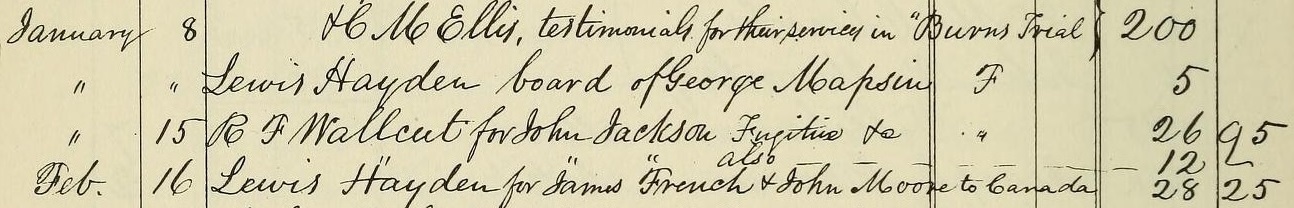 January 8 & C M Ellis, testimonials for their services in "Burns Trial } 200
" " Lewis Hayden board of George Mapsin F 5
" 15 R F Wallcut for John Jackson Fugitive &c " 26 95
" " also 12
Feb. 16 Lewis Hayden for James French & John Moore to Canada 28 25